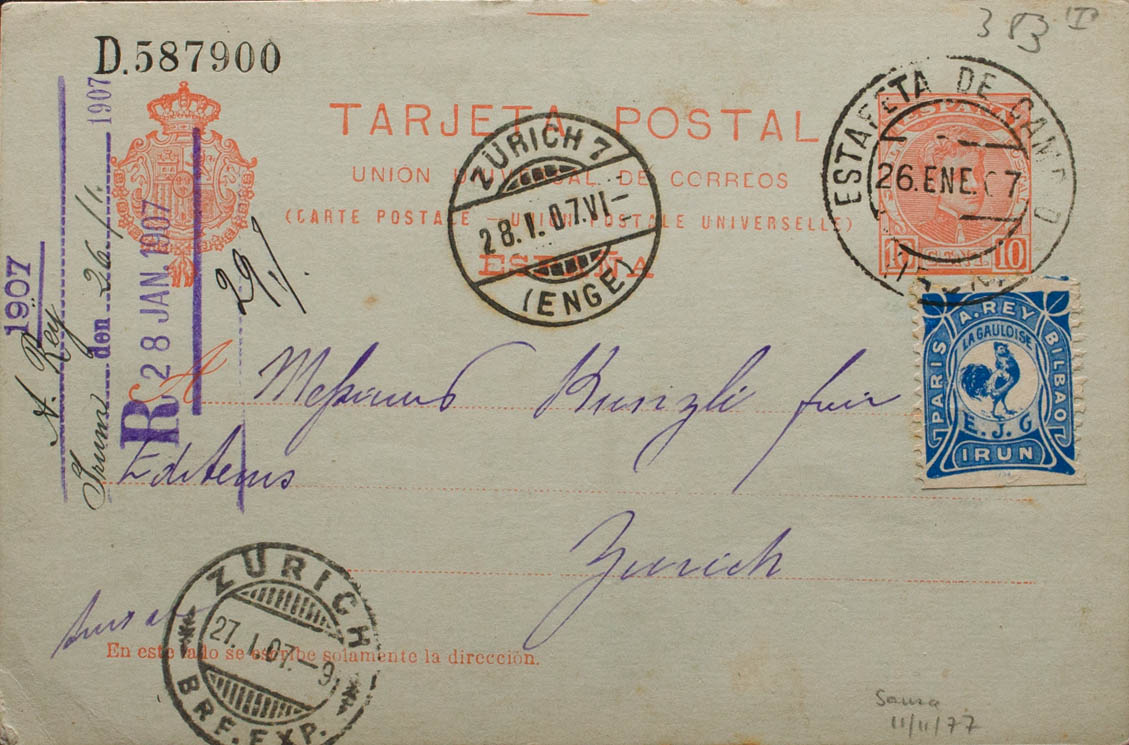 383 I
D.587900
TARJETA POSTAL
UNIÓN UNIVERSAL DE CORREOS
(CARTE POSTALE - UNION POSTALE UNIVERSELLE)
ESPAÑA
ESPAÑA
10 CENT 10
ESTAFETA DE CAMBIO
26.ENE.07
IRUN
ZÜRICH 7
28.I.07.VI-
(ENGE)
PARIS A.REY BILBAO
LA GAULOISE
E.J.G
IRUN
1907
A. Rey
Irun den 26/1. 1907
R 28 JAN. 1907
29/1.
A Messieurs Kunzli frèr
Editeurs
Zurich
ZÜRICH
27.I.07.-9
BRF.EXP.
En este lado se escribe solamente la dirección.
11/11/77